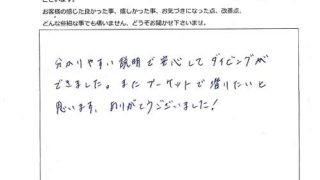 お客様の感じた良かった事、嬉しかった事、お気づきになった点、改善点、
どんな些細な事でも構いません、どうぞお聞かせ下さいませ。
分かりやすい説明で安心してダイビングが
できました。またプーケットで潜りたいと
思います。ありがとうございました！